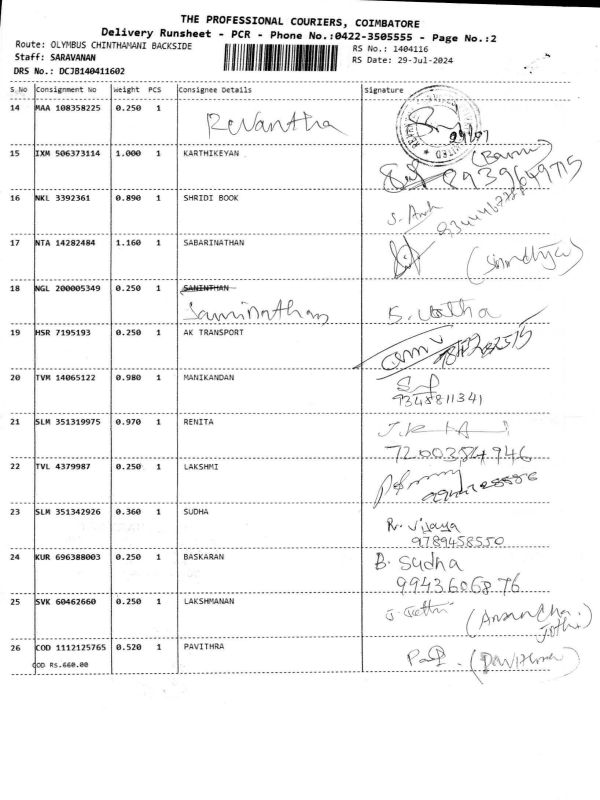 THE PROFESSIONAL COURIERS, COIMBATORE
Delivery Runsheet - PCR - Phone No.:0422-3505555 - Page No.:2
Route: OLYMBUS CHINTHAMANI BACKSIDE RS No.: 1404116
Staff: SARAVANAN RS Date: 29-Jul-2024
DRS No.: DCJB140411602
S.No Consignment No Weight PCS Consignee Details Signature
14 MAA 108358225 0.250 1
Revantha
15 IXM 506373114 1.000 1 KARTHIKEYAN
8939649715
16 NKL 3392361 0.890 1 SHRIDI BOOK
17 NTA 14282484 1.160 1 SABARINATHAN
18 NGL 200005349 0.250 1 SANINTHAN
Saminathan
19 HSR 7195193 0.250 1 AK TRANSPORT
20 TVM 14065122 0.980 1 MANIKANDAN
9345811341
21 SLM 351319975 0.970 1 RENITA
7200354946
22 TVL 4379987 0.250 1 LAKSHMI
23 SLM 351342926 0.360 1 SUDHA
R. Vijaya
9789458550
24 KUR 696388003 0.250 1 BASKARAN B. Sudha
9943606876
25 SVK 60462660 0.250 1 LAKSHMANAN
26 COD 1112125765 0.520 1 PAVITHRA
COD RS.660.00 (Pavithra)